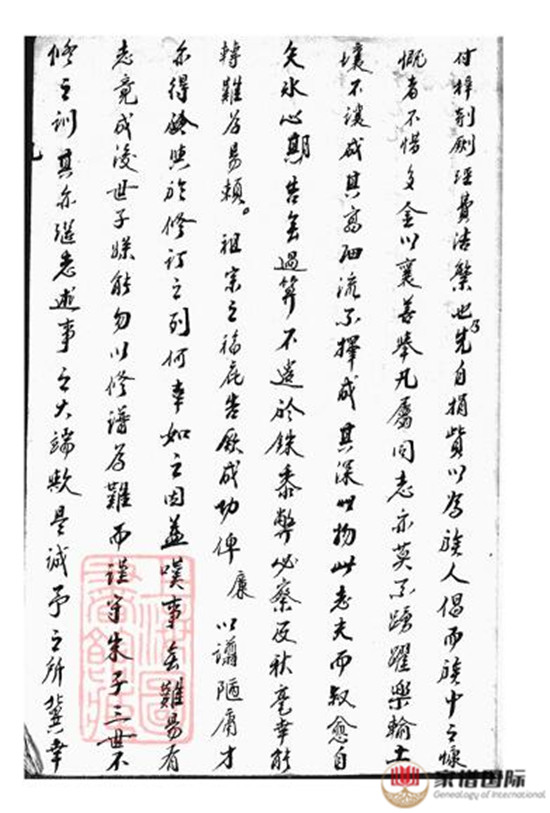 付梓剞劂經費浩繁也乃先自捐貲以為族人倡而族中之慷
慨者不惜多金以襄善舉凡屬同志亦莫不踴躍樂輸土
壤不讓成其高細流不擇成其深此物此志夫而叙愈自
矢水心期告無過算不遺於銖黍弊必察及秋毫幸能
轉難為易賴。祖宗之福庇告厥成功俾廉以譾陋庸才
亦得於修訂之列何幸如之因益嘆事無難易有
志竟成後世子孫能勿以修譜為難而謹守朱子三世不
修之訓其亦繼志述事之大端歟是誠予之所冀幸
上海圖書館藏
家谱国际
Genealogy of International